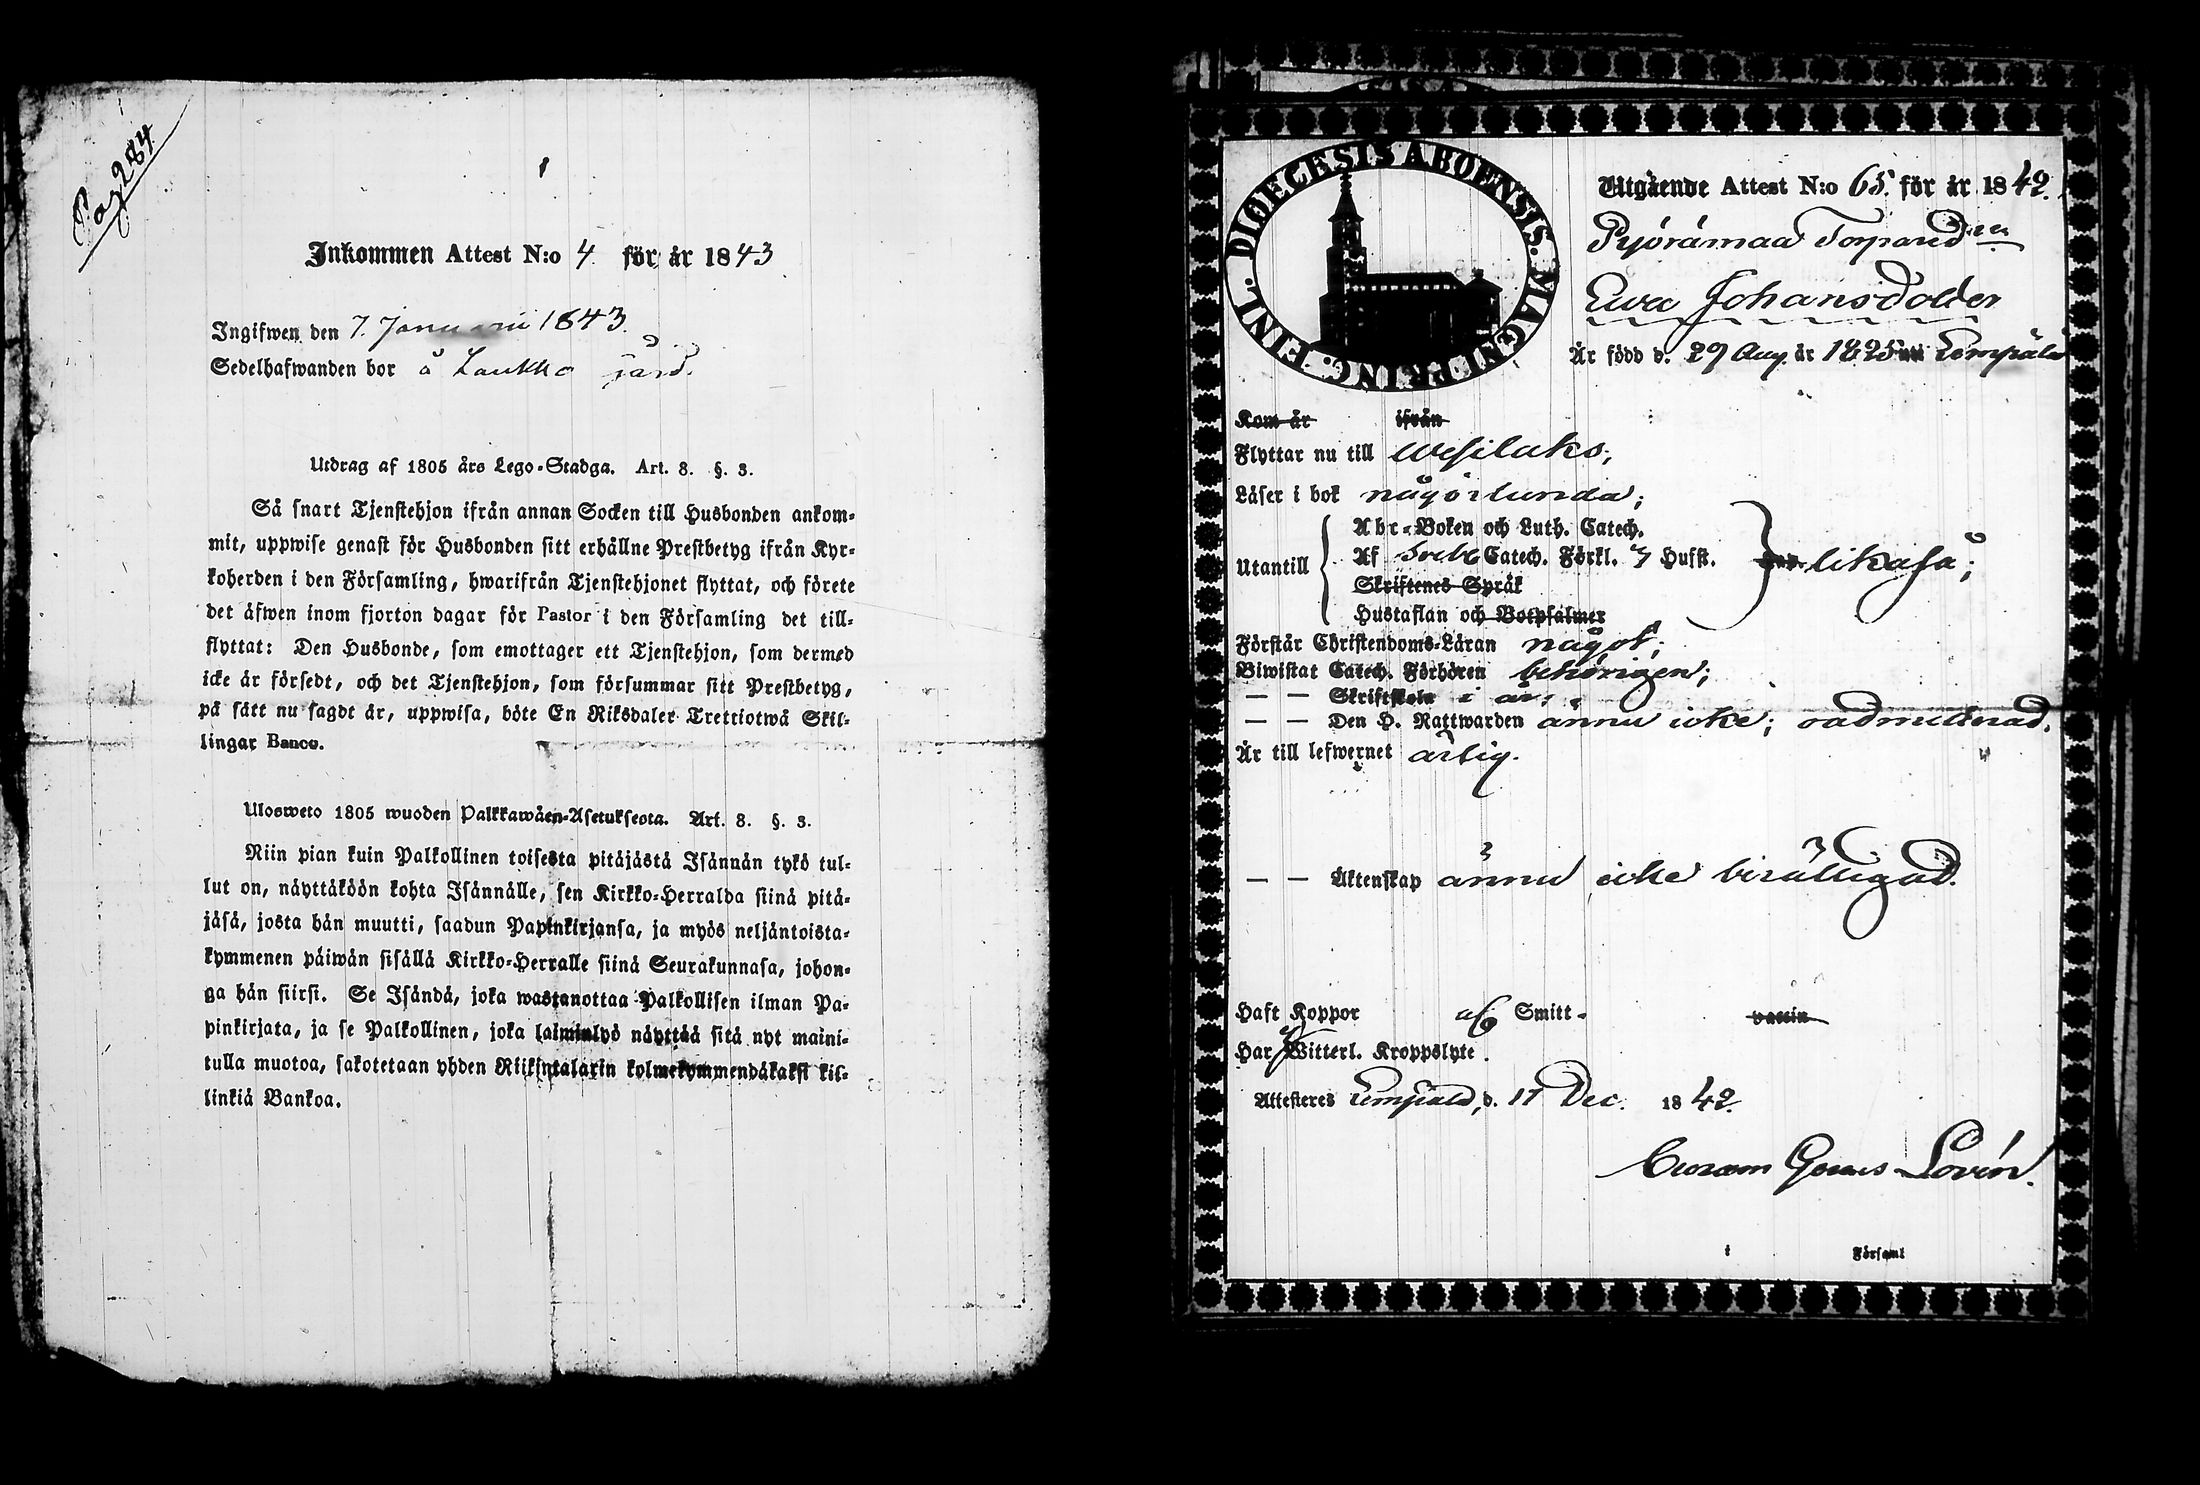 Pag 284
Inkommen Attest N:o 4 för år 1843
Ingifwen den 7. Januarii 1843.
Sedelhafwanden bor å Laukko gård.
Utdrag af 1805 års Lego-Stadga. Art. 8. §. 3.
Så snart Tjenstehjon ifrån annan Socken till Husbonden ankom-
mit, uppwise genast för Husbonden sitt erhållne Prestbetyg ifrån Kyr-
koherden i den Församling, hwarifrån Tjenstehjonet flyttat, och förete
det äfwen inom fjorton dagar för Pastor i den Församling det till-
flyttat: Den Husbonde, som emottager ett Tjenstehjon, som dermed
icke är försedt, och det Tjenstehjon, som försummar sitt Prestbetyg,
på sätt nu sagdt är, uppwisa, böte En Riksdaler Trettiotwå Skil-
lingar Banco.
Ulosweto 1805 wuoden Palkkawäen-Asetuksesta. Art. 8. §. 3.
Niin pian kuin Palkollinen toisesta pitäjästä Isännän tykö tul-
lut on, näyttäköön kohta Isännälle, sen Kirkko-Herralda siinä pitä-
jäsä, josta hän muutti, saadun Papinkirjansa, ja myös neljäntoista-
kymmenen päiwän sisällä Kirkko-Herralle siinä Seurakunnasa, johon-
ga hän siirsi. Se Isändä, joka wastanottaa Palkollisen ilman Pa-
pinkirjata, ja se Palkollinen, joka laiminlyö näyttää sitä nyt maini-
tulla muotoa, sakotetaan yhden Riiksintalarin kolmekymmendäkaksi kil-
linkiä Bankoa.
FINL. DIOECESIS ABOENSIS. MAGNI PRINC.
Utgående Attest N:o 65. för år 1842.
Pyörämaa Torpared:r
Ewa Johansdotter
Är född d. 29 Aug. år 1825 Lempäla
Kom år ifrån
Flyttar nu till Wesilaks;
Läser i bok någorlunda;
Abc-Boken och Luth. Catech.
Utantill Af Sveb. Catech. Förkl. Husst. likaså;
Skriftenes Språk
Hustaflan och Botpsalmer
Förstår Christendoms-Läran något;
Biwistat Catech. Förhören behörigen;
— — Skriftskola i år;
— — Den H. Nattwarden ännu icke; oadmitterad.
Är till lefwernet ärlig.
— — Äktenskap ännu icke
Haft Koppor af Smitt- vaccin
Har Witterl. Kroppslyte.
Attesteres Lempäla, d. 17 Dec. 1842.
Lovén.
i Församl